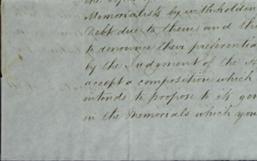 the
Memorialists by withholden
Debt due to them; and the
to denounce their preferential
by the Judgment of the
accept a composition which
intends to propose to its
in the Memorials which you